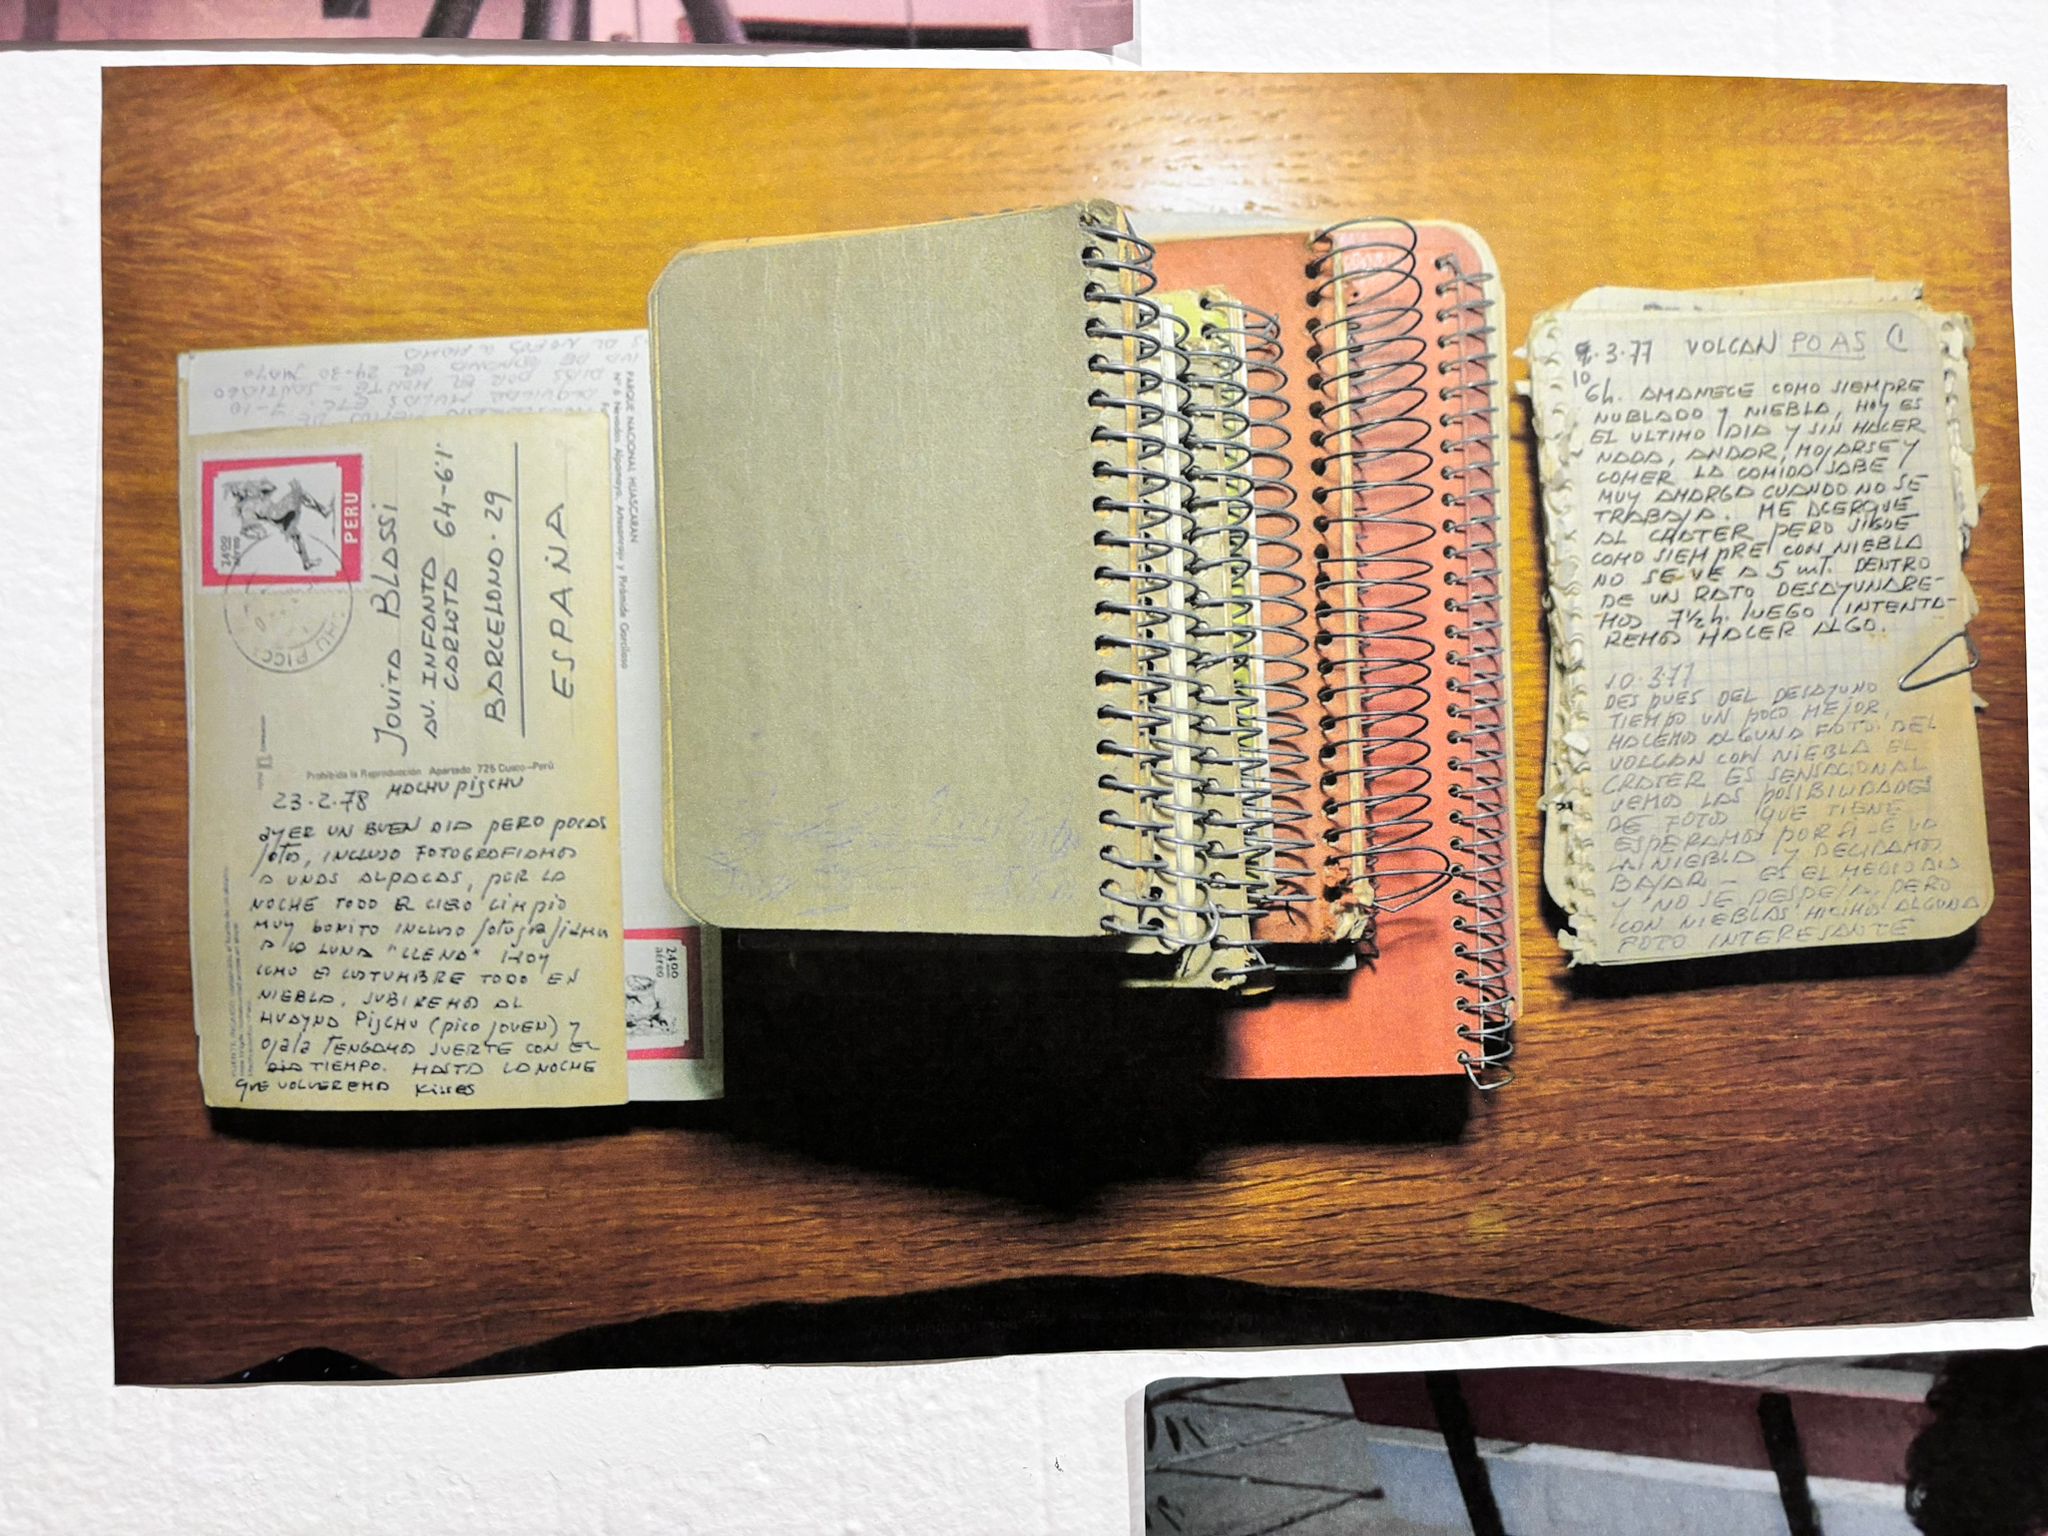 PERU
24.00
aéreo
JOVITA BLASSI
AV. INFANTA
CARLOTA 64-6º1ª
BARCELONA. 29
ESPAÑA
Prohibida la Reproducción Apartado 725 Cusco-Perú
23.2.78 MACHU PIJCHU
AYER UN BUEN DIA PERO POCAS
foto, INCLUSO FOTOGRAFIAMOS
A UNAS ALPACAS, POR LA
NOCHE TODO EL CIELO LIMPIO
MUY BONITO INCLUSO fotografiamos
A LA LUNA "LLENA" HOY
COMO COSTUMBRE TODO EN
NIEBLA, SUBIREMOS AL
HUAYNA PIJCHU (PICO JOVEN) Y
OJALA TENGAMOS SUERTE CON EL
TIEMPO. HASTA LA NOCHE
QUE VOLVEREMO Kisses
PARQUE NACIONAL HUASCARAN
Nº 6 Nevados Alpamayo, Artesonraju y Pirámide Garcilaso
24.00
aéreo
10.3.77 VOLCAN POAS
6h. AMANECE COMO SIEMPRE
NUBLADO Y NIEBLA, HOY ES
EL ULTIMO DIA Y SIN HACER
NADA, ANDAR, MOJARSE Y
COMER LA COMIDA SABE
MUY AMARGA CUANDO NO SE
TRABAJA. ME ACERQUE
AL CRATER PERO SIGUE
COMO SIEMPRE CON NIEBLA
NO SE VE A 5 mt. DENTRO
DE UN RATO DESAYUNARE-
MOS 7½ h. LUEGO INTENTA-
REMOS HACER ALGO.
10.3.77
DESPUES DEL DESAYUNO
TIEMPO UN POCO MEJOR,
HACEMO ALGUNA FOTO. DEL
VOLCAN CON NIEBLA EL
CRATER ES SENSACIONAL
VEMO LAS POSIBILIDADES
DE FOTO QUE TIENE
ESPERAMOS POR SI SE VA
LA NIEBLA Y DECIDIMOS
BAJAR - ES EL MEDIO DIA
Y NO SE DESPEJA, PERO
CON NIEBLAS HICIMO ALGUNA
FOTO INTERESANTE